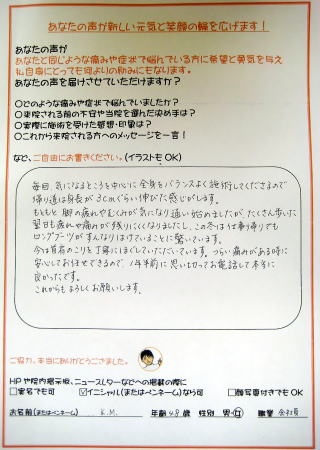 あなたの声が新しい元気と笑顔の輪を広げます！
あなたの声が
あなたと同じような痛みや症状で悩んでいる方に希望と勇気を与え
私自身にとっても何よりの励みにもなります。
あなたの声を届けさせていただけますか？
○どのような痛みや症状で悩んでいましたか？
○来院される前の不安や当院を選んだ決め手は？
○実際に施術を受けた感想・印象は？
○これから来院される方へのメッセージを一言！
など、ご自由にお書きください。（イラストもOK）
毎回、気になるところを中心に全身をバランスよく施術してくださるので
帰り道は身長が3cmぐらい伸びた感じがします。
もともと脚の疲れやむくみが気になり通い始めましたが、たくさん歩いた
翌日も疲れや痛みが残りにくくなりましたし、この冬は仕事帰りでも
ロングブーツがすんなりはけていることに驚いています。
今は首肩のこりを丁寧にほぐしていただいています。つらい痛みがある時に
安心してお任せできるので、1年半前に思い切ってお電話して本当に
良かったです。
これからもよろしくお願いします。
ご協力、本当にありがとうございました。
HPや院内掲示板、ニュースレターなどへの掲載の際に
□実名でも可 ☑イニシャル(またはペンネーム)なら可 □顔写真付きでもOK
お名前(またはペンネーム) K.M. 年齢 48 歳 性別 男・女 職業 会社員